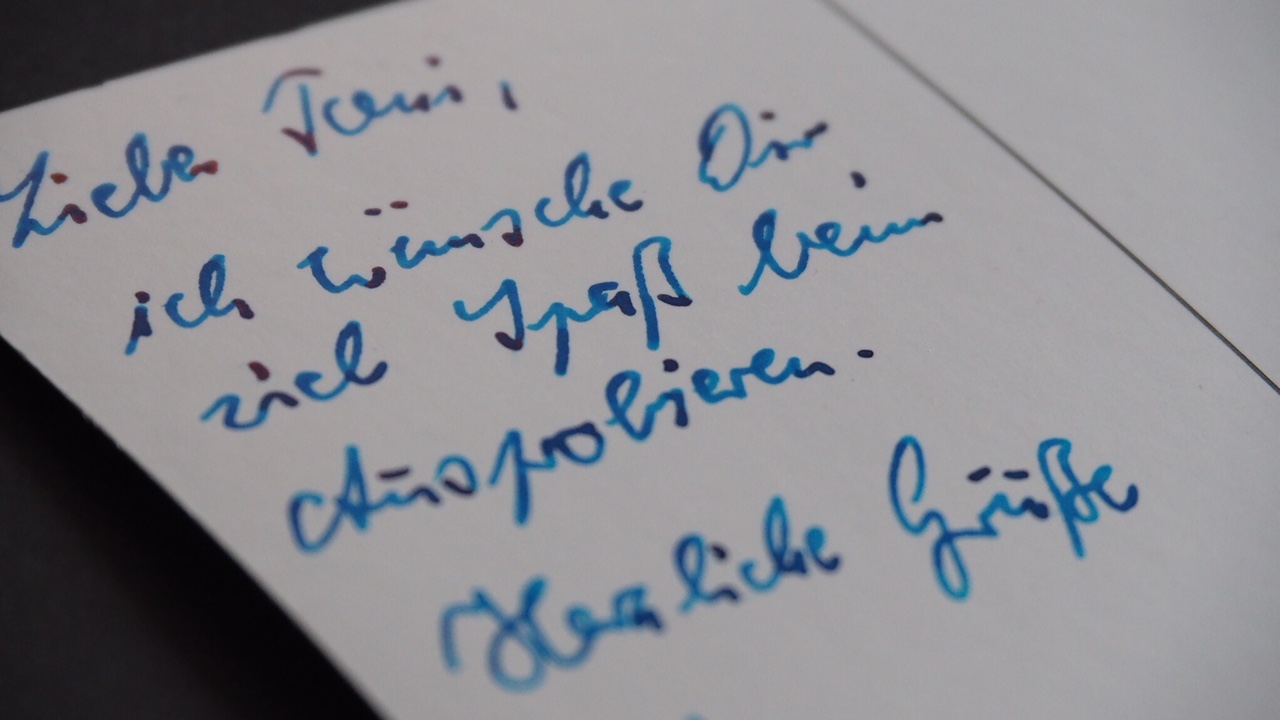 Lieber Tomi,
ich wünsche Dir
viel Spaß beim
Ausprobieren.
Herzliche Grüße